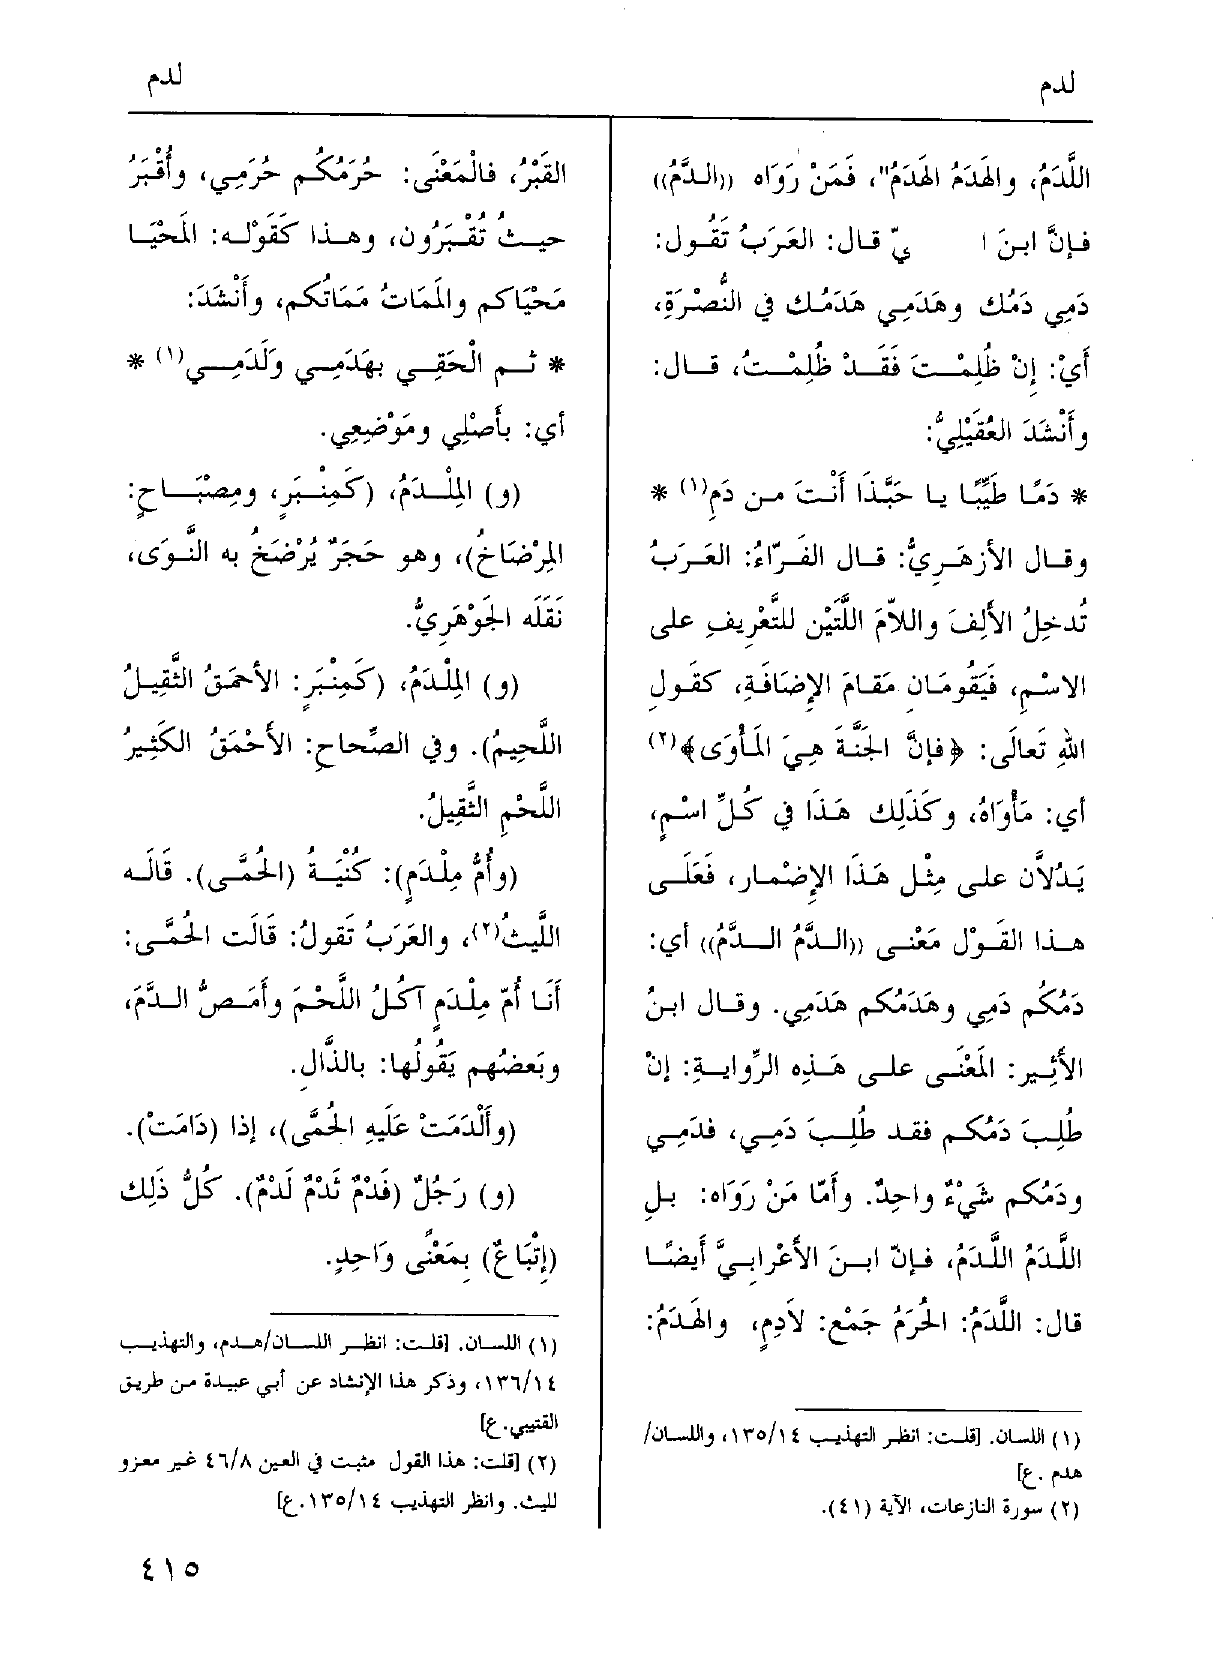 لدم
لدم
اللَّدَمُ، والهَدَمُ الهَدَمُ"، فَمَنْ رَوَاه ((الـدَّمُ))
فإنَّ ابنَ ا يّ قال: العَرَبُ تَقُول:
دَمِي دَمُك وهَدَمِي هَدَمُك في النُّصْرَةِ،
أَيْ: إِنْ ظُلِمْتَ فَقَد ظُلِمْتُ، قال:
وأَنْشَدَ العُقَيْلِيُّ:
* دَمًا طَيِّبًا يا حَبَّذَا أَنْتَ من دَمِ(١) *
وقال الأزهَرِيُّ: قال الفَرَّاءُ: العَرَبُ
تُدخِلُ الألِفَ واللاَّمَ اللَّتَيْن للتَّعْرِيفِ على
الاسْمِ، فَيَقُومَان مَقامَ الإضَافَةِ، كقَولِ
اللهِ تَعالَى: ﴿فإنَّ الجَنَّةَ هِيَ المَأْوَى﴾(٢)
أي: مَأْوَاهُ، وكَذَلِك هَذَا في كُلِّ اسْمٍ،
يَدُلاَّن على مِثْلِ هَذَا الإِضْمار، فَعَلَى
هذا القَوْل مَعْنى ((الدَّمُ الدَّمُ)) أي:
دَمُكُم دَمِي وهَدَمُكُم هَدَمِي. وقال ابنُ
الأَثِير: المَعْنَى على هَذِه الرِّوايةِ: إنْ
طُلِبَ دَمُكُم فقد طُلِبَ دَمِي، فدَمِي
ودَمُكُم شَيْءٌ واحِدٌ. وأَمَّا مَنْ رَوَاه: بلِ
اللَّدَمُ اللَّدَمُ، فإنّ ابنَ الأَعْرابِيَّ أيضًا
قال: اللَّدَمُ: الحُرَمُ جَمْع: لاَدِمٍ، والهَدَمُ:
(١) اللسان. [قلت: انظر التهذيب ١٣٥/١٤، واللسان/
هدم .ع]
(٢) سورة النازعات، الآية (٤١).
القَبْرُ، فالْمَعْنَى: حُرَمُكُم حُرَمِي، وأُقْبَرُ
حيثُ تُقْبَرُون، وهذا كَقَوْلِه: المَحْيَا
مَحْيَاكم والمَمَاتُ مَمَاتُكم، وأَنْشَدَ:
* ثم الْحَقِي بهَدَمِي ولَدَمِي(١) *
أي: بأَصْلِي ومَوْضِعِي.
(و) المِلْدَمُ، (كَمِنْبَرٍ، ومِصْبَاحٍ:
المِرْضَاخُ)، وهو حَجَرٌ يُرْضَخُ به النَّوَى،
نَقَلَه الجَوْهَرِيُّ.
(و) المِلْدَمُ، (كَمِنْبَرٍ: الأحْمَقُ الثَّقِيلُ
اللَّحِيمُ). وفي الصِّحاحِ: الأَحْمَقُ الكَثِيرُ
اللَّحْمِ الثَّقِيلُ.
(وأُمُّ مِلْدَمٍ): كُنْيَةُ (الحُمَّى). قَالَه
اللَّيثُ(٢)، والعَرَبُ تَقولُ: قَالَت الحُمَّى:
أنَا أُمّ مِلْدَمٍ آكُلُ اللَّحْمَ وأَمَصُّ الدَّمَ،
وبَعضُهم يَقُولُها: بالذَّال.
(وأَلْدَمَتْ عَلَيهِ الحُمَّى)، إذا (دَامَتْ).
(و) رَجُلٌ (فَدْمٌ ثَدْمٌ لَدْمٌ). كُلُّ ذلِك
(إِتْبَاعٌ) بِمَعْنًى وَاحِدٍ.
(١) اللسان. [قلت: انظر اللسان/هدم، والتهذيب
١٣٦/١٤، وذكر هذا الإنشاد عن أبي عبيدة من طريق
القتيبي.ع]
(٢) [قلت: هذا القول مثبت في العين ٤٦/٨ غير معزو
لليث. وانظر التهذيب ١٣٥/١٤.ع]
٤١٥